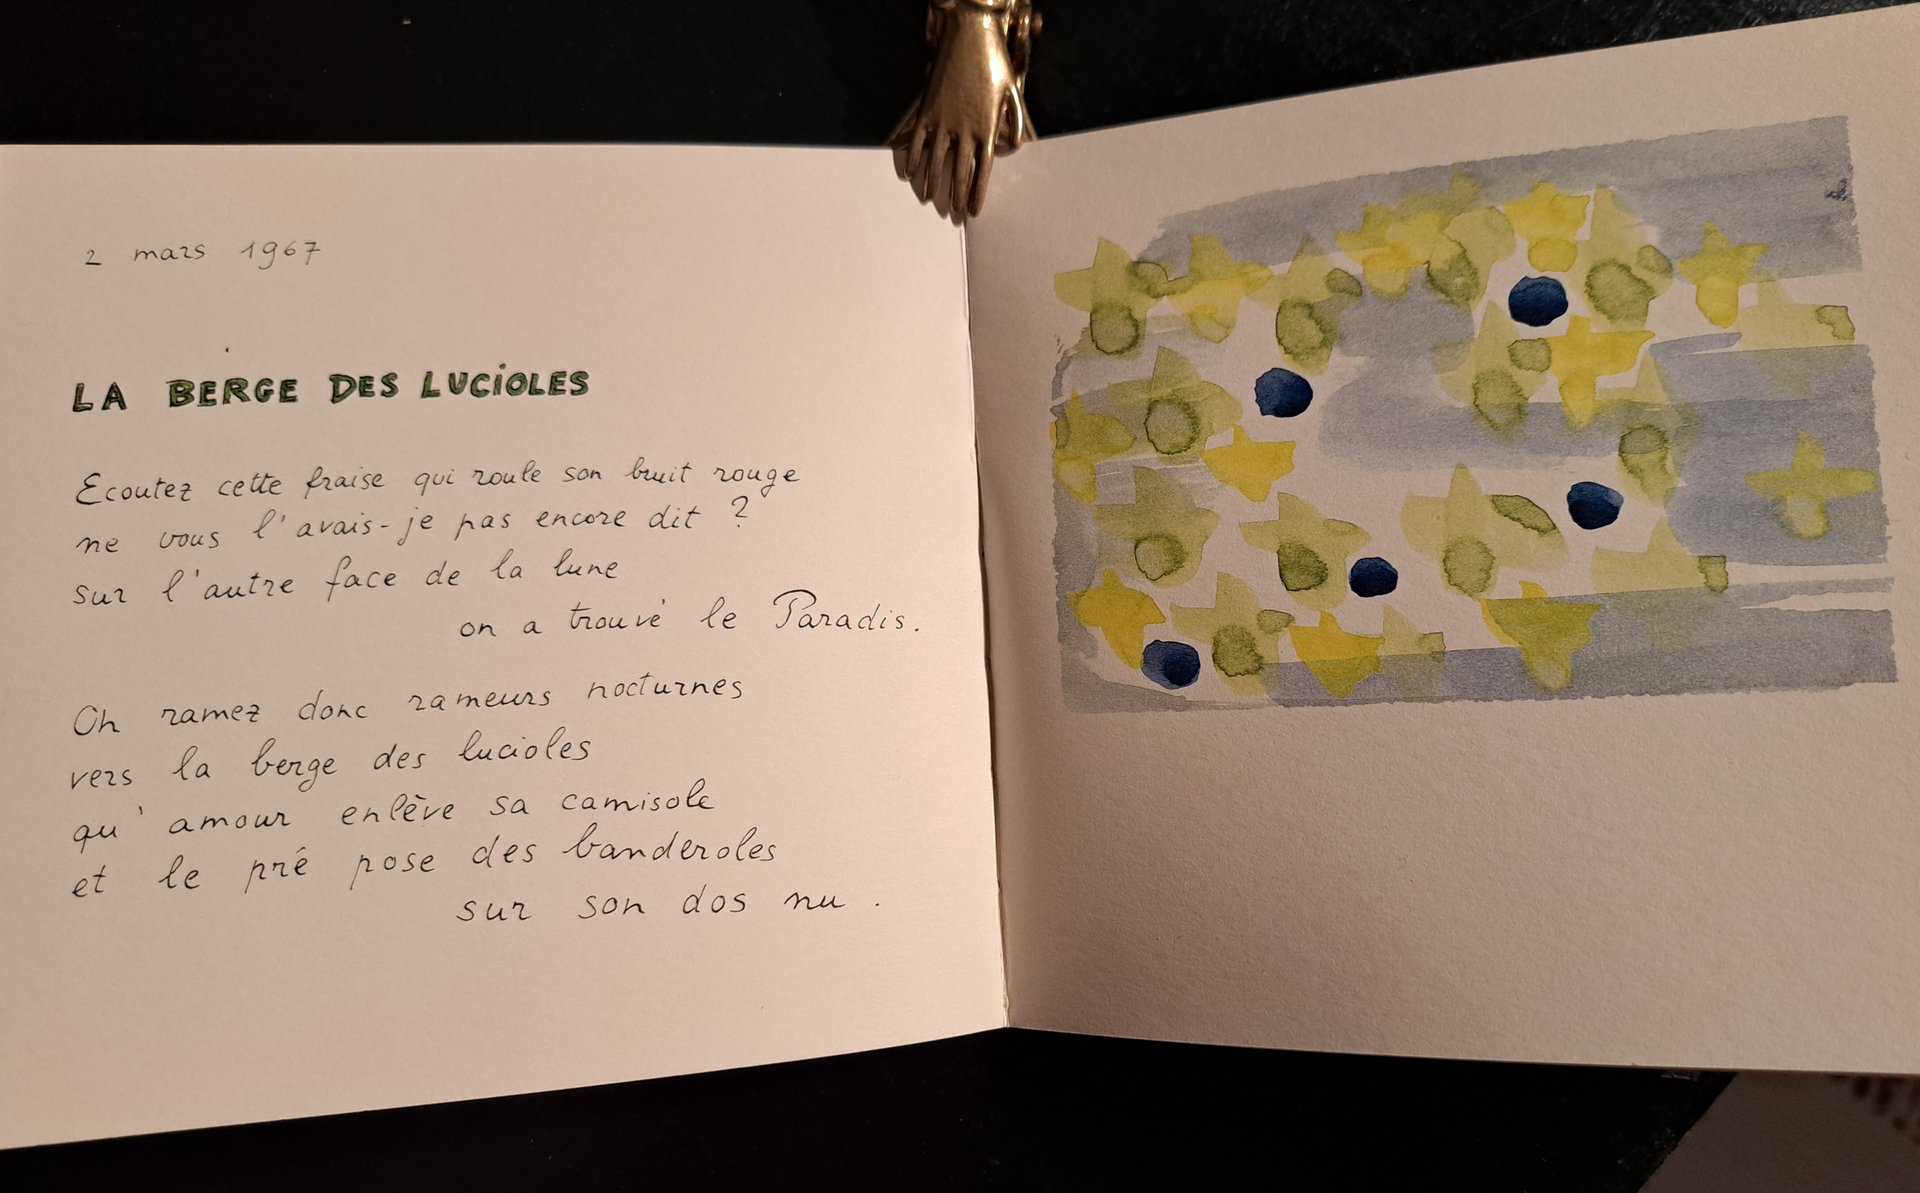 2 mars 1967
LA BERGE DES LUCiOLES
Ecoutez cette fraise qui roule son bruit rouge
ne vous l'avais-je pas encore dit ?
sur l'autre face de la lune
on a trouvé le Paradis.
Oh ramez donc rameurs nocturnes
vers la berge des lucioles
qu'amour enlève sa camisole
et le pré pose des banderoles
sur son dos nu.